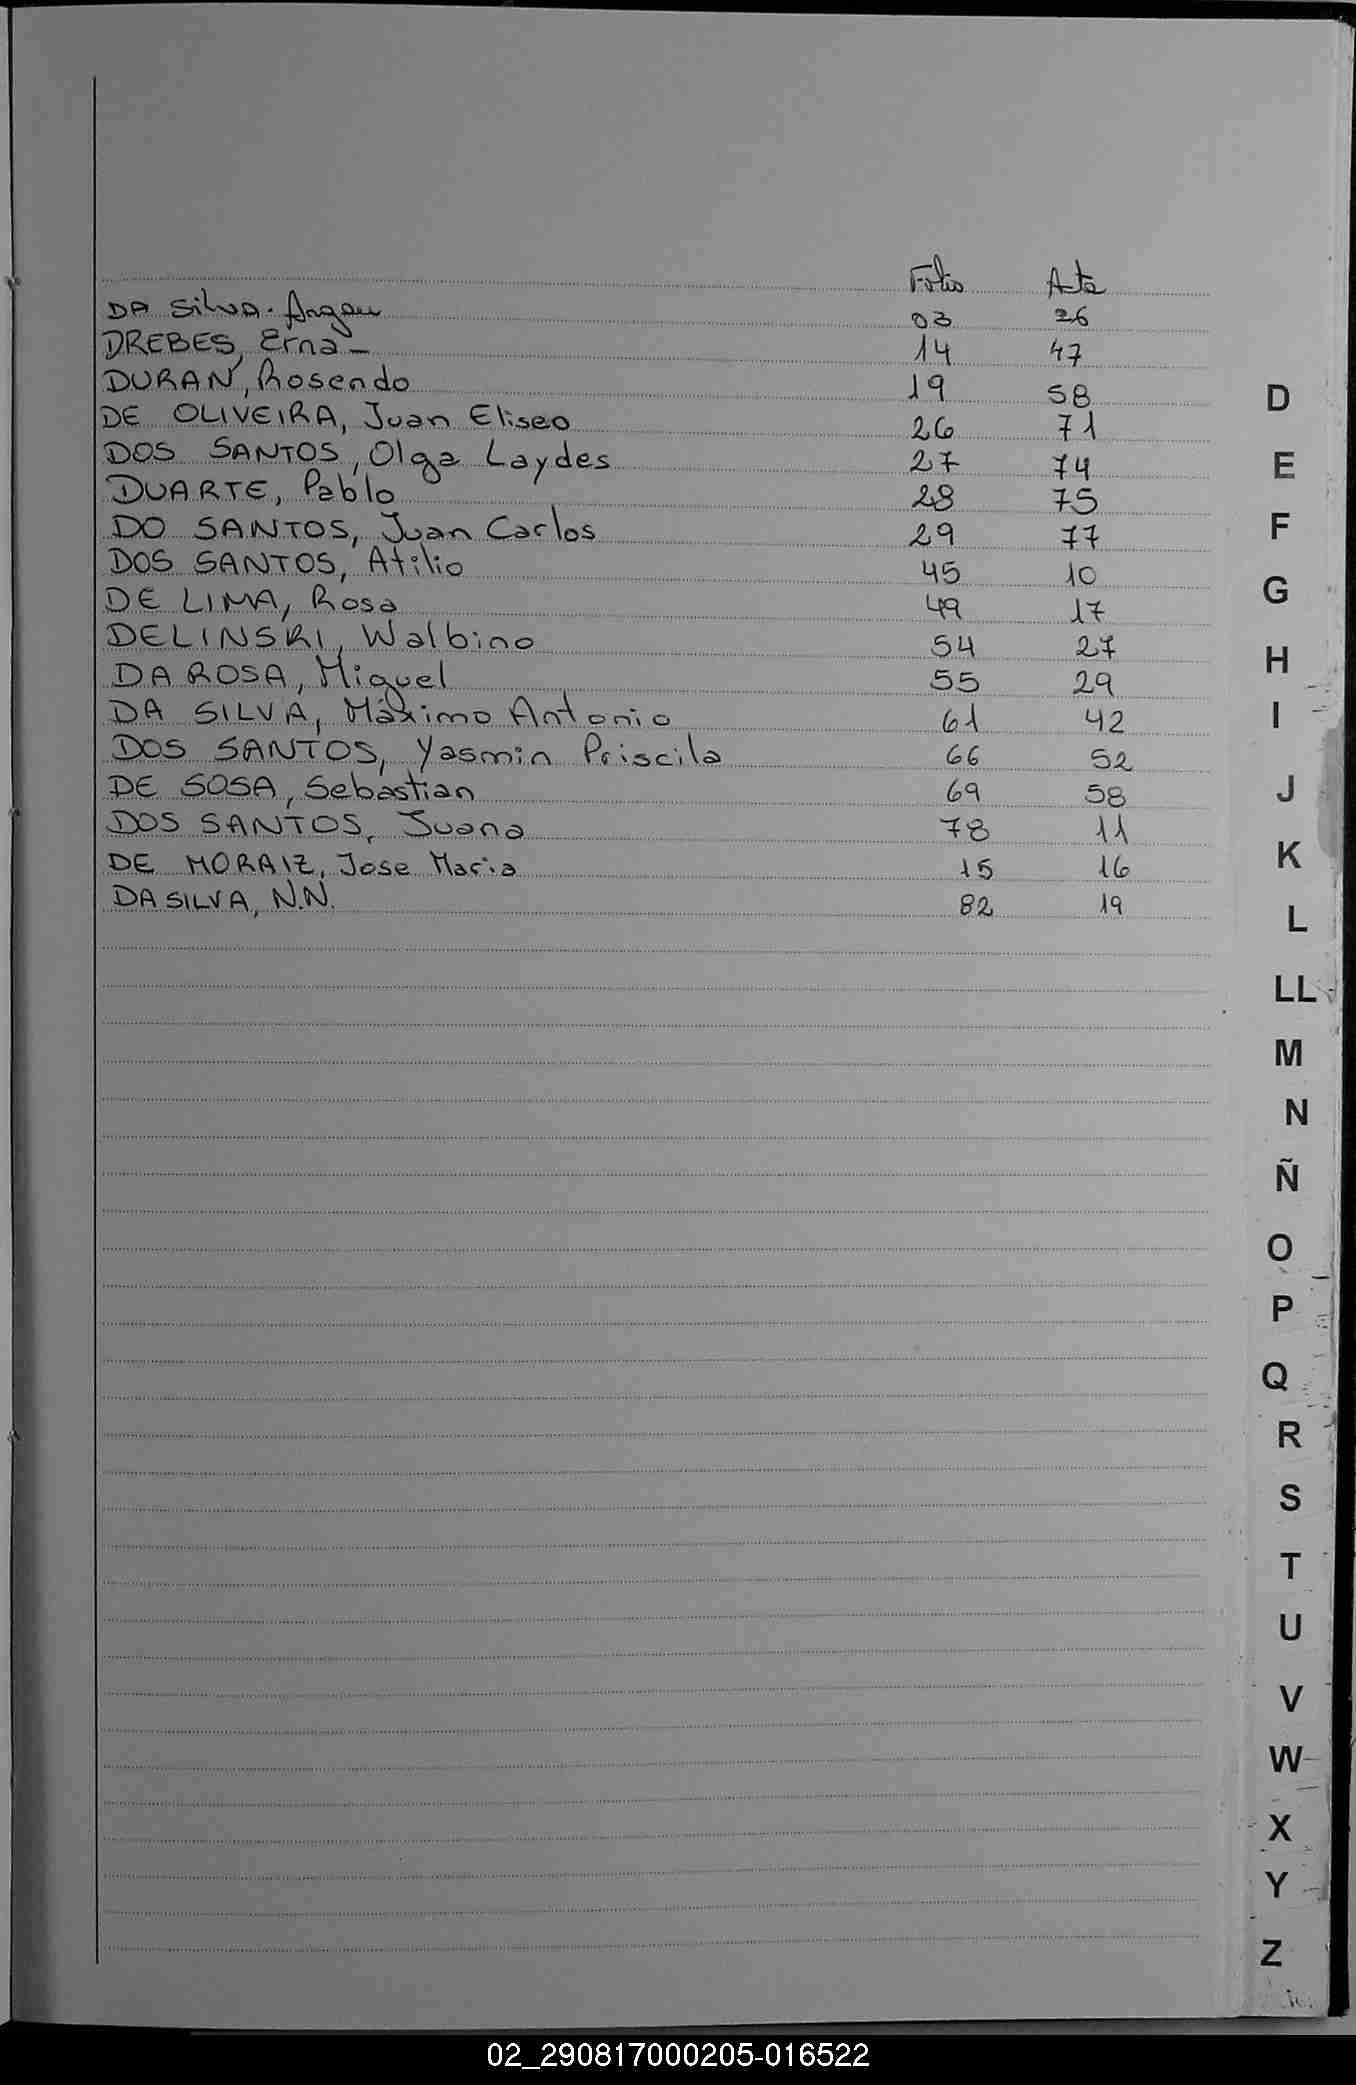 Folio Acta
DA Silva. 03 26
DREBES, Erna - 14 47
DURAN, Rosendo 19 58
DE OLIVEIRA, Juan Eliseo 26 71
DOS SANTOS, Olga Laydes 27 74
DUARTE, Pablo 28 75
DO SANTOS, Juan Carlos 29 77
DOS SANTOS, Atilio 45 10
DE LIMA, Rosa 49 17
DELINSKI, Walbino 54 27
DA ROSA, Miguel 55 29
DA SILVA, Máximo Antonio 61 42
DOS SANTOS, Yasmin Priscila 66 52
DE SOSA, Sebastian 69 58
DOS SANTOS, Juana 78 11
DE MORAIZ, Jose Maria 15 16
DA SILVA, N.N. 82 19
D
E
F
G
H
I
J
K
L
LL
M
N
Ñ
O
P
Q
R
S
T
U
V
W
X
Y
Z
02_290817000205-016522